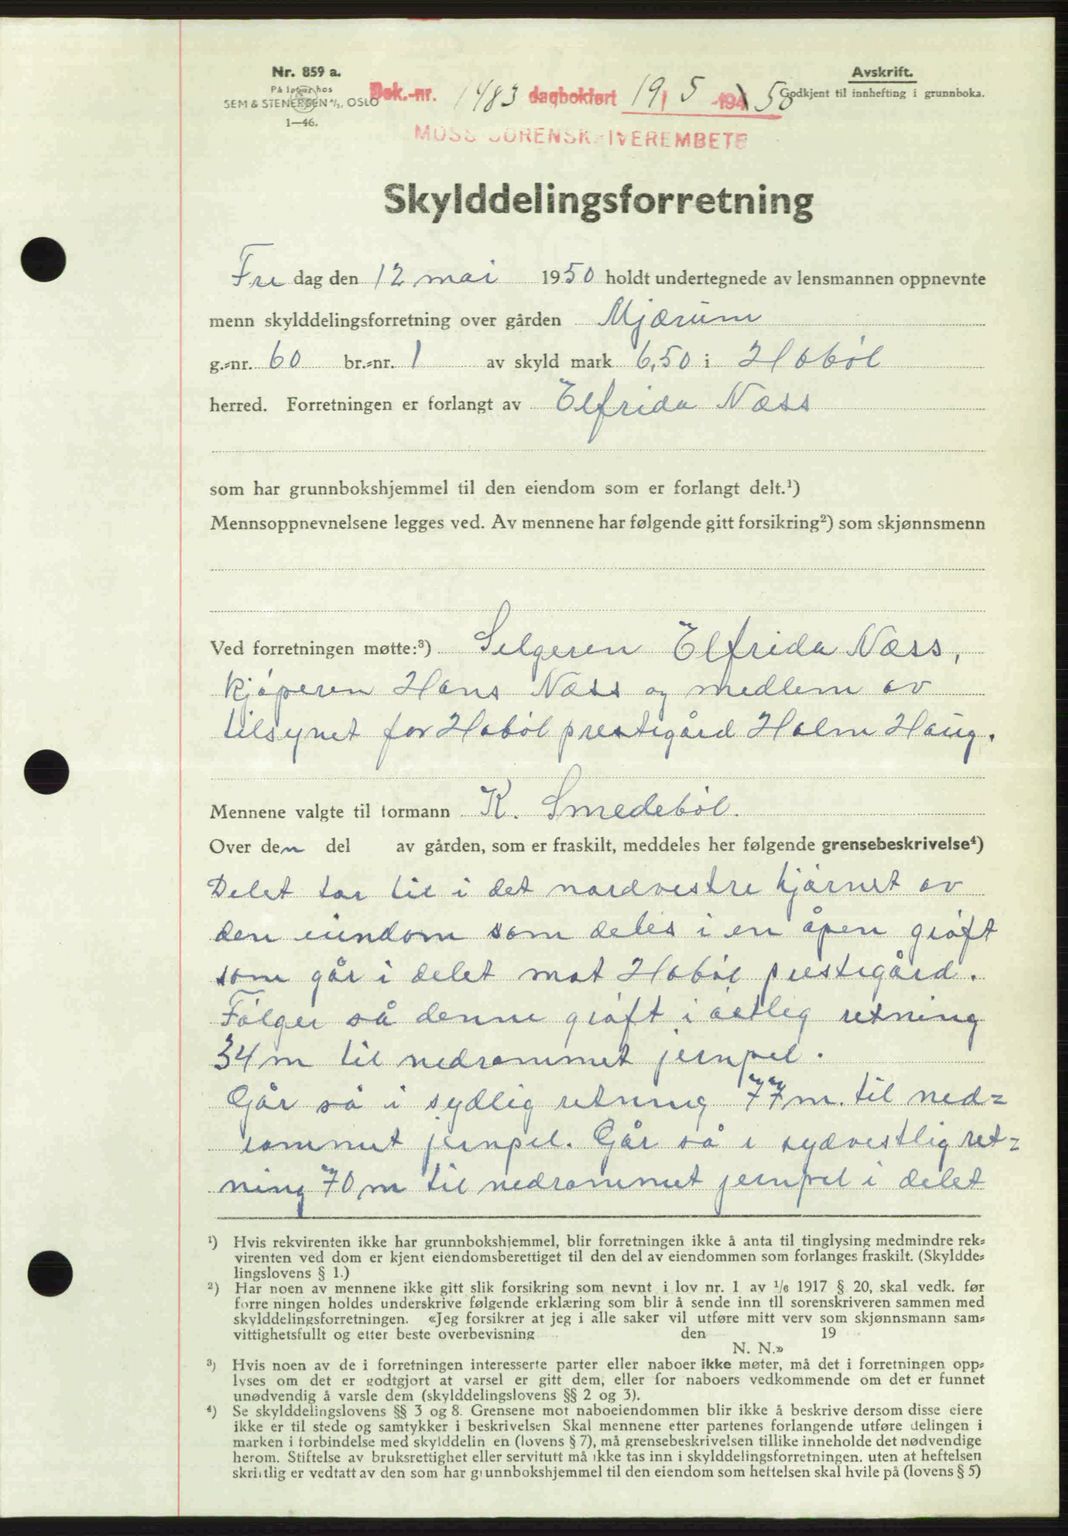 Nr. 859 a.
På lager hos
SEM & STENERSEN A/S, OSLO
1—46.
Dok.-nr. 1483 dagbokført 19/5 -194 50
MOSS SORENSKRIVEREMBETE
Avskrift.
Godkjent til innhefting i grunnboka.
Skylddelingsforretning
Fre dag den 12 mai 1950 holdt undertegnede av lensmannen oppnevnte
menn skylddelingsforretning over gården Mjærum
g.-nr. 60 br.-nr. 1 av skyld mark 6,50 i Hobøl
herred. Forretningen er forlangt av Elfrida Næss
som har grunnbokshjemmel til den eiendom som er forlangt delt.¹)
Mennsoppnevnelsene legges ved. Av mennene har følgende gitt forsikring²) som skjønnsmenn
Ved forretningen møtte:³) Selgeren Elfrida Næss,
kjøperen Hans Næss og medlem av
tilsynet for Hobøl prestegård Holm Haug.
Mennene valgte til formann K. Smedebøl.
Over den del av gården, som er fraskilt, meddeles her følgende grensebeskrivelse⁴)
Delet tar til i det nordvestre hjørnet av
den eiendom som deles i en åpen grøft
som går i delet mot Hobøl prestegård.
Følger så denne grøft i østlig retning
34 m til nedrammet jernpel.
Går så i sydlig retning 77 m. til ned=
rammet jernpel. Går så i sydvestlig ret=
ning 70 m til nedrammet jernpel i delet
¹) Hvis rekvirenten ikke har grunnbokshjemmel, blir forretningen ikke å anta til tinglysing medmindre rek-
virenten ved dom er kjent eiendomsberettiget til den del av eiendommen som forlanges fraskilt. (Skyldde-
lingslovens § 1.)
²) Har noen av mennene ikke gitt slik forsikring som nevnt i lov nr. 1 av 1/6 1917 § 20, skal vedk. før
forretningen holdes underskrive følgende erklæring som blir å sende inn til sorenskriveren sammen med
skylddelingsforretningen. «Jeg forsikrer at jeg i alle saker vil utføre mitt verv som skjønnsmann sam-
vittighetsfullt og etter beste overbevisning den 19
N. N.»
³) Hvis noen av de i forretningen interesserte parter eller naboer ikke møter, må det i forretningen opp-
lyses om det er godtgjort at varsel er gitt dem, eller for naboers vedkommende om det er funnet
unødvendig å varsle dem (skylddelingslovens §§ 2 og 3).
⁴) Se skylddelingslovens §§ 3 og 8. Grensene mot naboeiendommen blir ikke å beskrive dersom disse eiere
ikke er til stede og samtykker i beskrivelsen Skal mennene etter partenes forlangende utføre delingen i
marken i forbindelse med skylddelingen (lovens § 7), må grensebeskrivelsen tillike inneholde det nødvendige
herom. Stiftelse av bruksrettighet eller servitutt må ikke tas inn i skylddelingsforretningen. uten at heftelsen
skriftlig er vedtatt av den som har grunnbokshjemmel til den eiendom som heftelsen skal hvile på (lovens § 5)